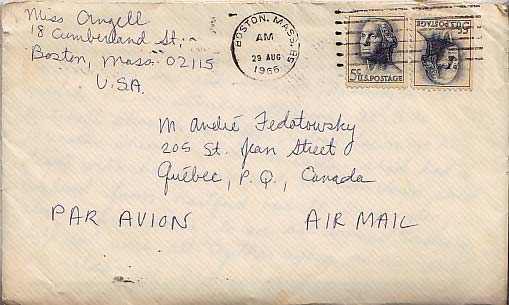 Miss Angell
18 Cumberland St.
Boston, Mass. 02115
U.S.A.
BOSTON, MASS.
AM
29 AUG
1966
5c U.S. POSTAGE
5c U.S. POSTAGE
M André Fedotowsky
205 St. Jean Street
Québec, P.Q., Canada
PAR AVION AIR MAIL